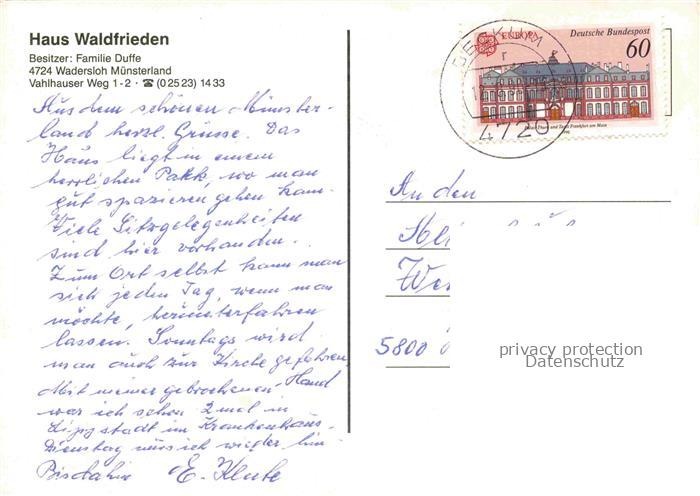 Haus Waldfrieden
Besitzer: Familie Duffe
4724 Wadersloh Münsterland
Vahlhauser Weg 1-2 · ☎ (0 25 23) 14 33
Aus dem schönen Münster-
land herzl. Grüsse. Das
Haus liegt in einem
herrlichen Park, wo man
gut spazieren gehen kann.
Viele Sitzgelegenheiten
sind hier vorhanden.
Zum Ort selbst kann man
sich jeden Tag, wenn man
möchte, herunterfahren
lassen. Sonntags wird
man auch zur Kirche gefahren,
Mit meiner gebrochenen Hand
war ich schon 2 mal in
Lippstadt im Krankenhaus.
Dienstag muss ich wieder hin.
Bis dahin E.
EUROPA Deutsche Bundespost
60
BECKUM
4720
An den
5800
privacy protection
Datenschutz